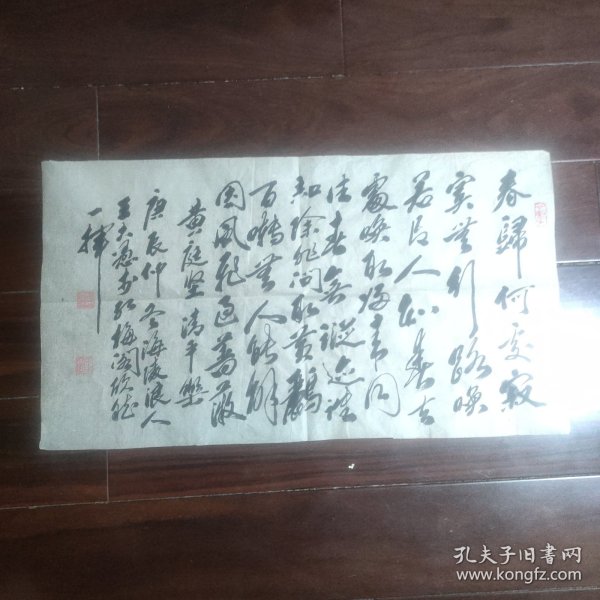 春歸何處寂
寞無行路喚
若有人知春去
處喚取歸來同
住春無踪迹誰
知除非問取黃鸝
百囀無人能解
因風飛過薔薇
黃庭堅清平樂
庚辰仲冬海陵浪人
王大
一揮
孔夫子旧书网
www.kongfz.com